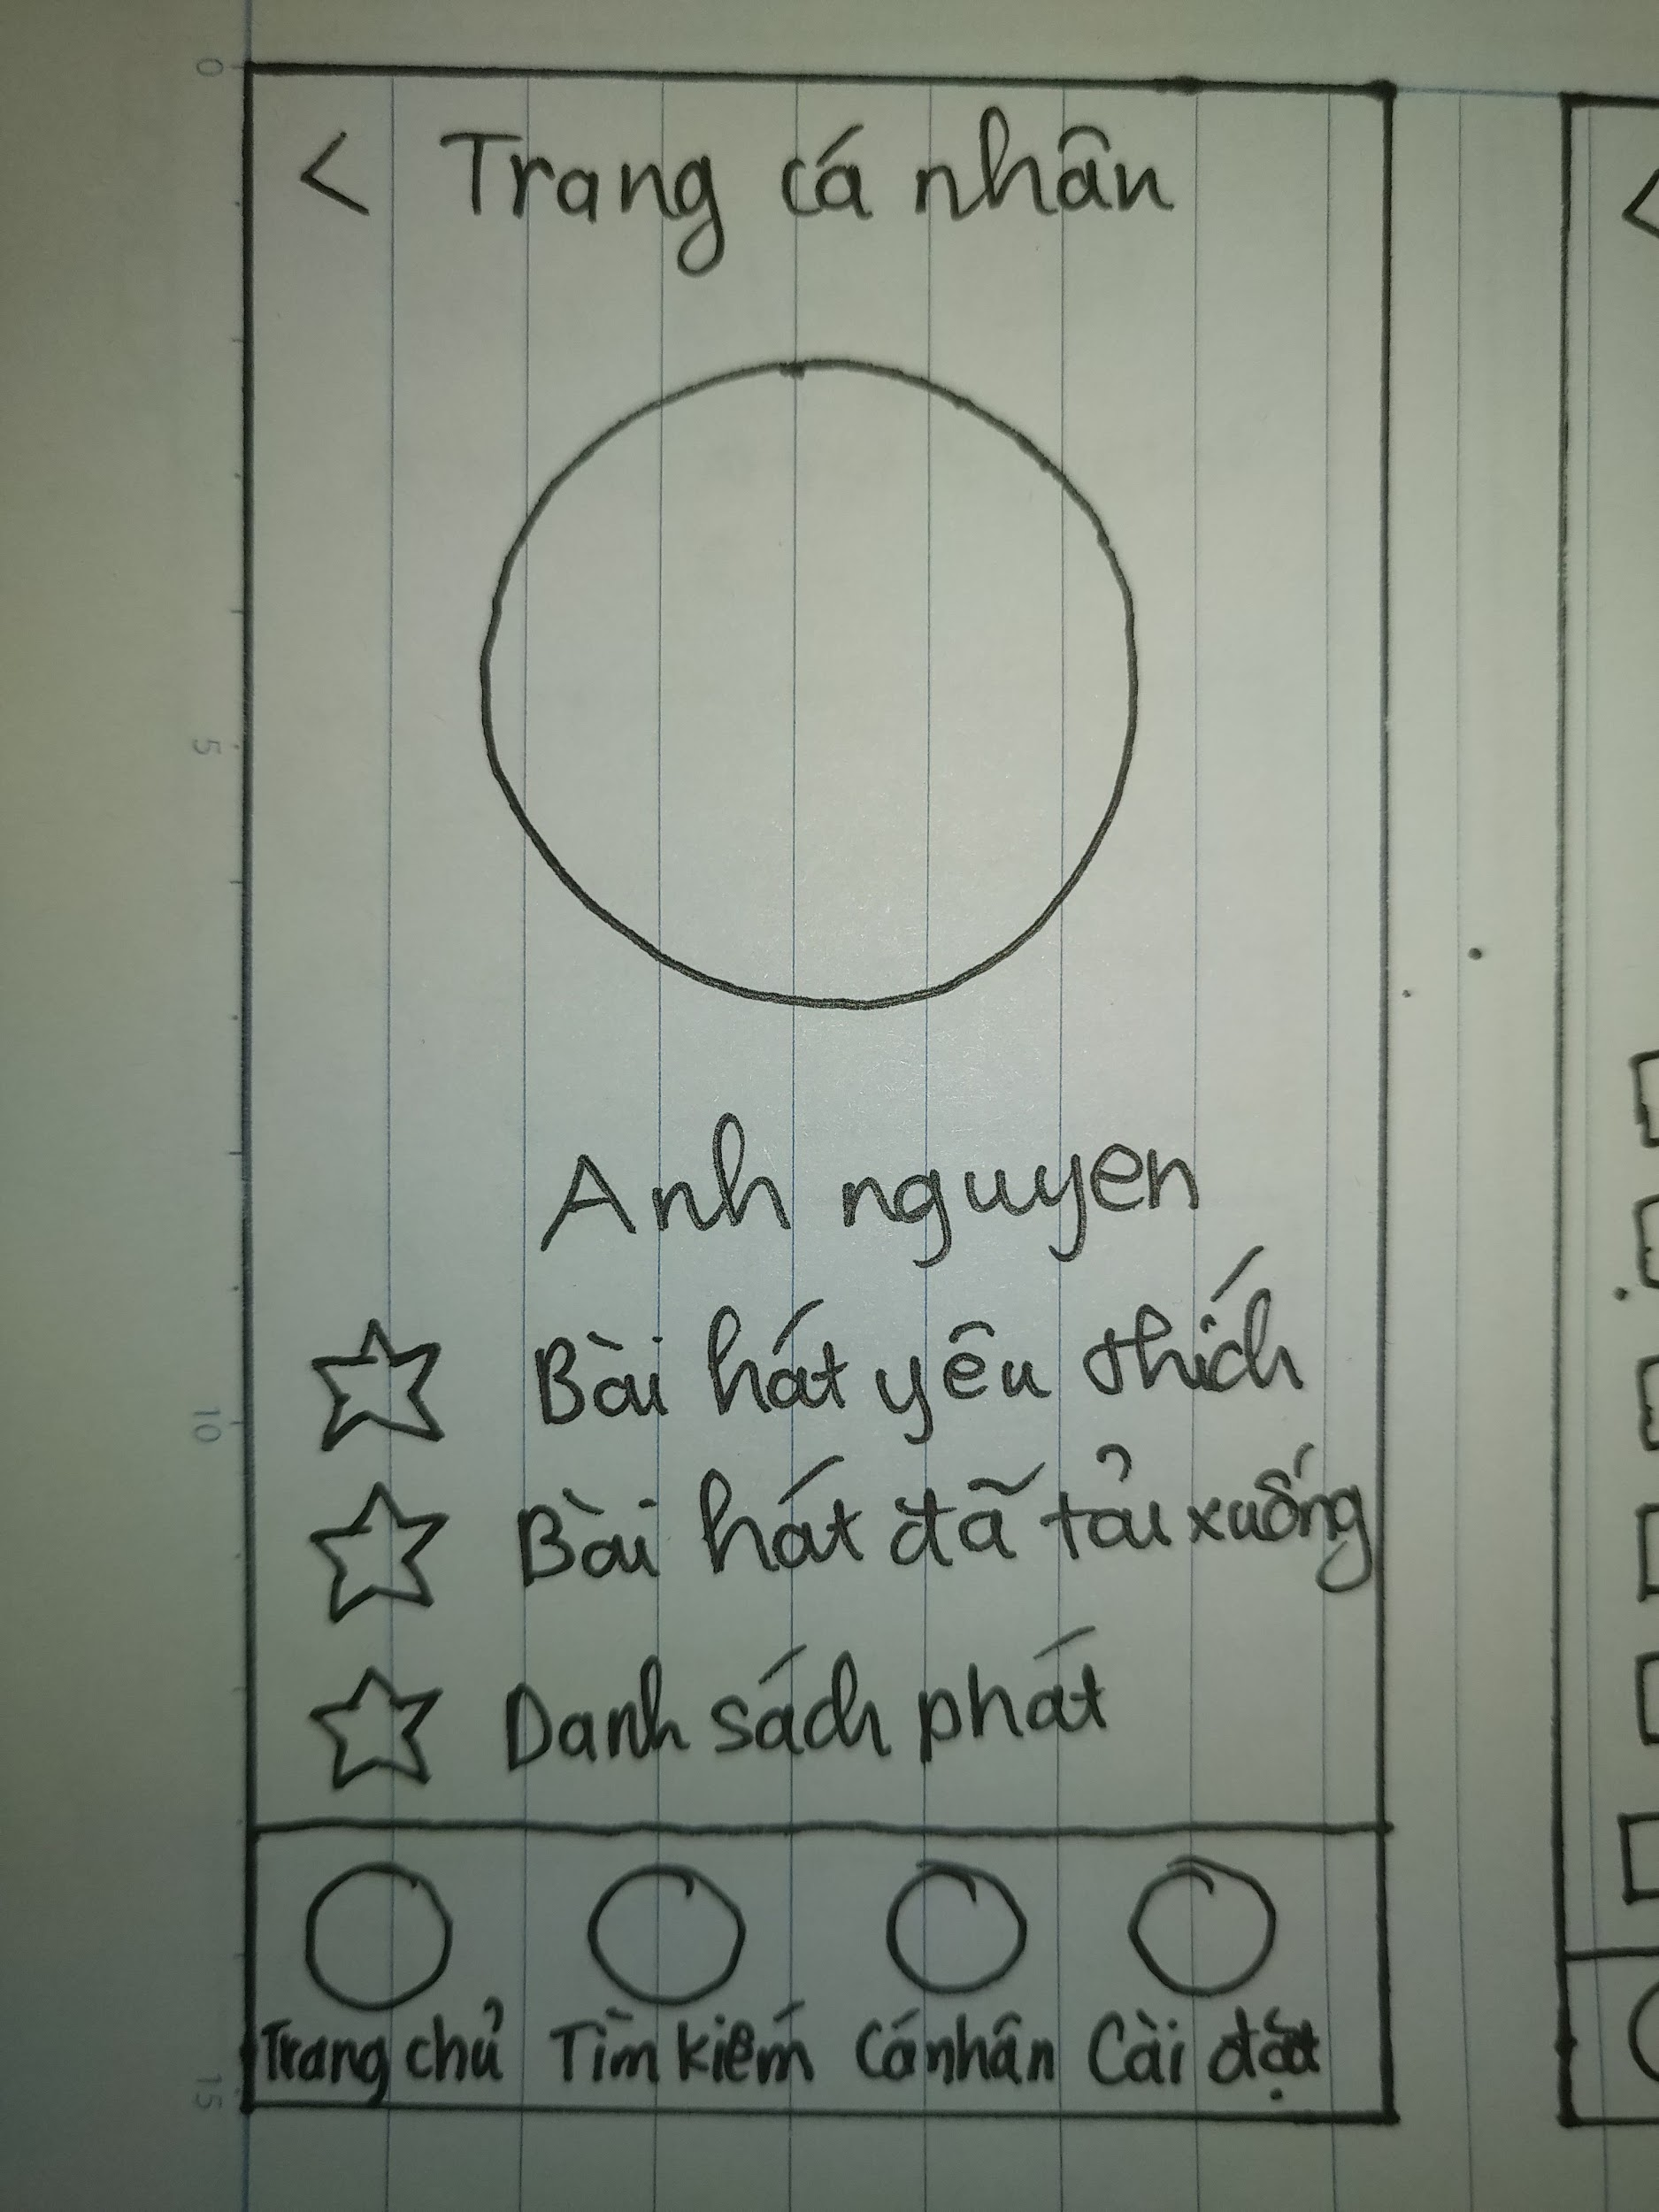 < Trang cá nhân
Anh nguyen
Bài hát yêu thích
Bài hát đã tải xuống
Danh sách phát
Trang chủ Tìm kiếm Cá nhân Cài đặt
0
5
10
15